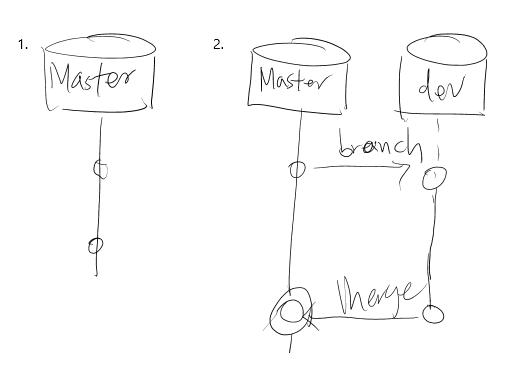 1.
Master
2.
Master
dev
branch
Merge